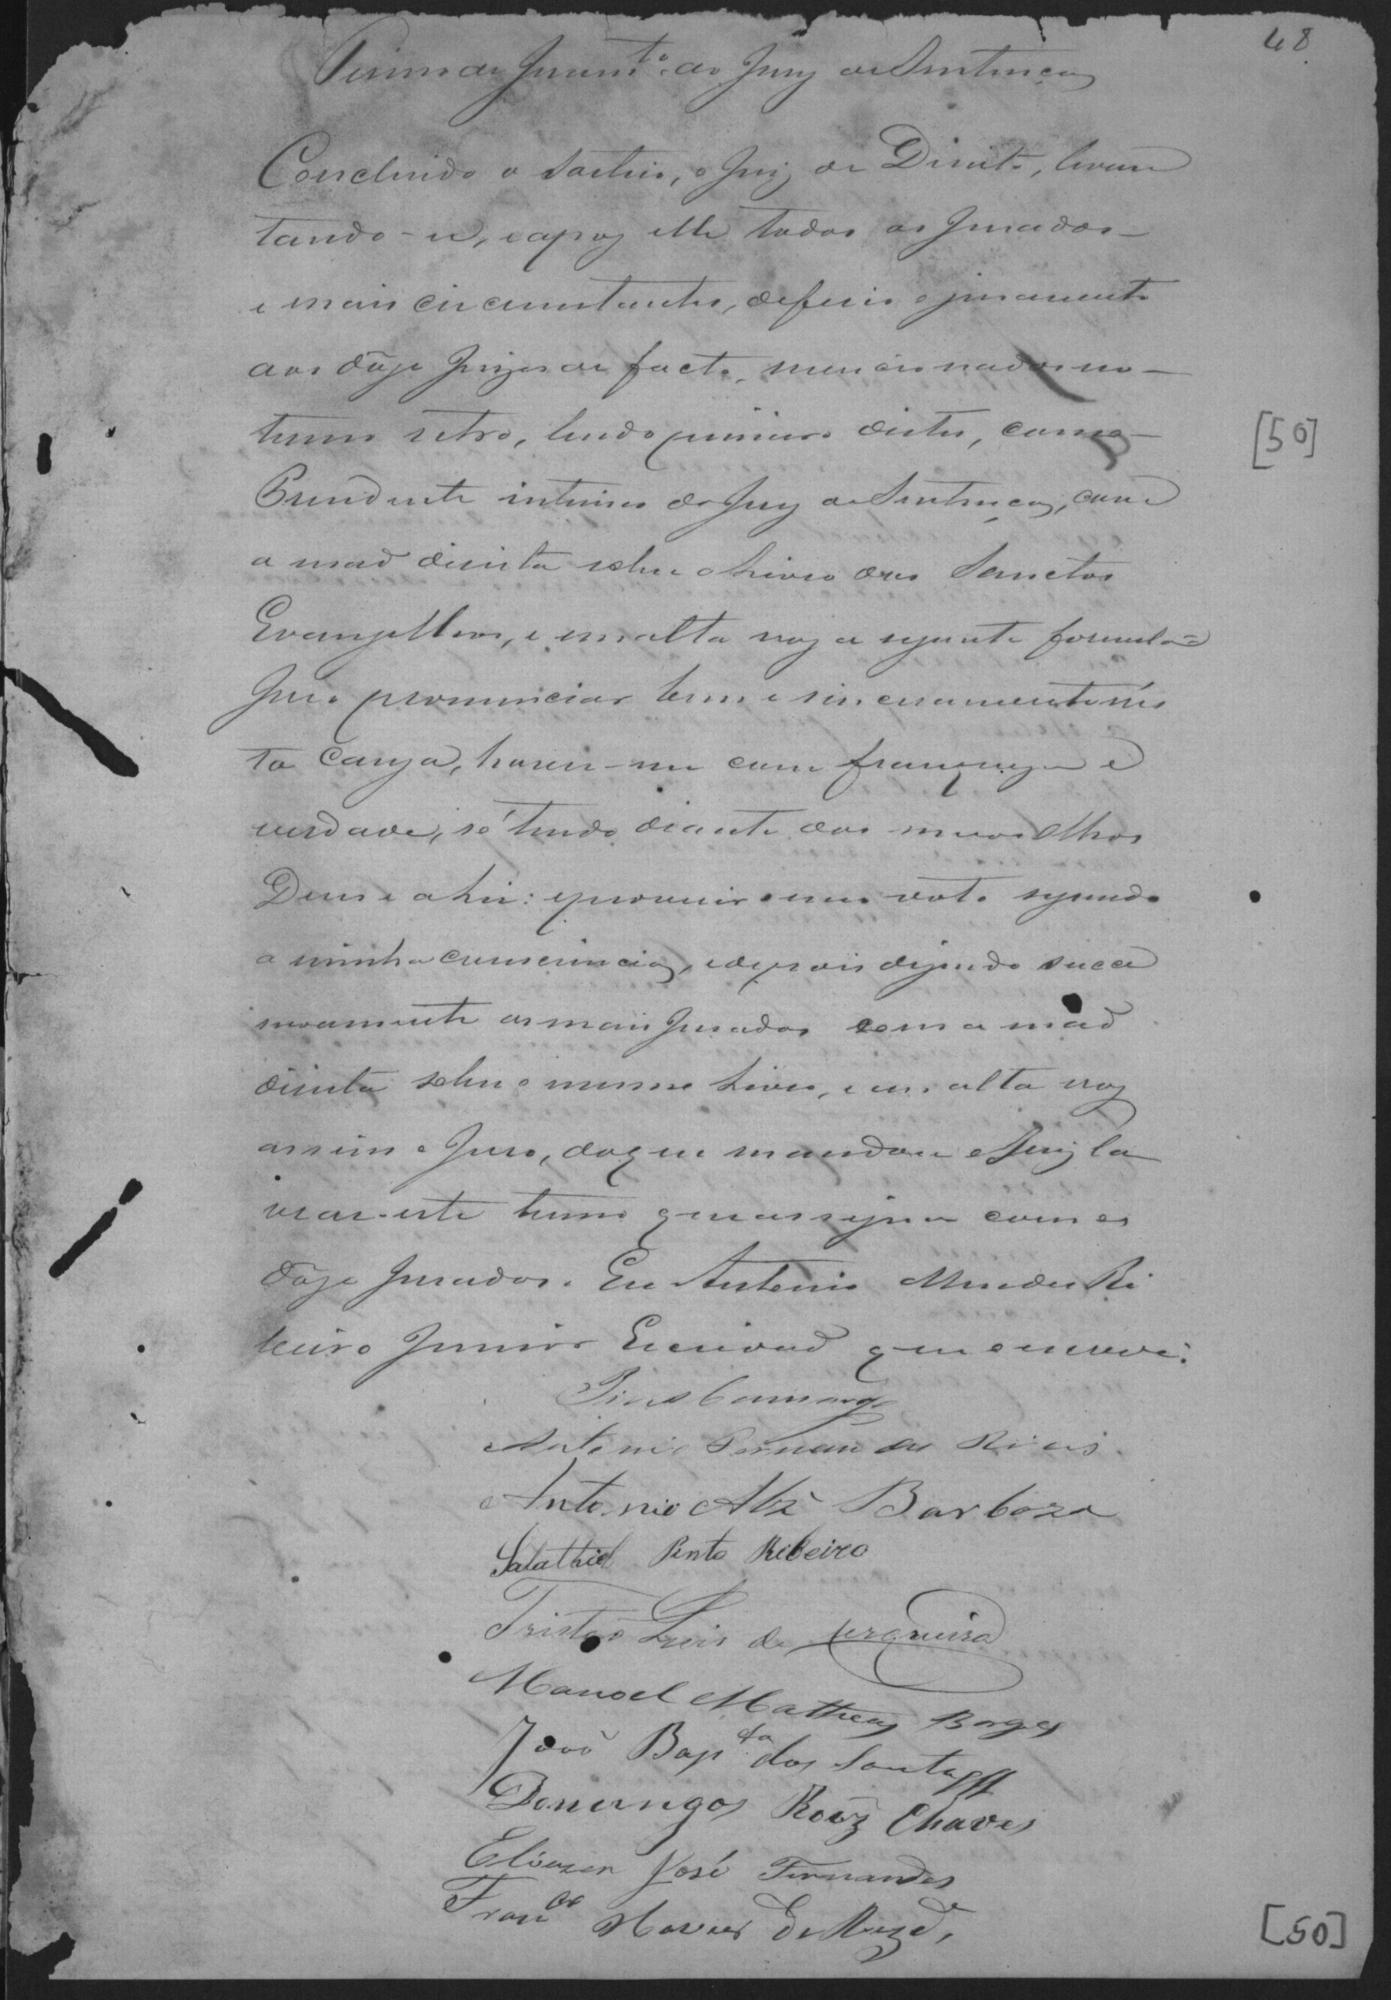 48
Termo de Juramto. do Jury de Sentença
Concluido o sorteio, o Juiz de Direito, levan
tando-se, e apoz elle todos os Jurados
e mais circumstantes, deferio o juramento
aos dôze Juizes de facto, mencionados no
termo retro, lendo primeiro destes, como
Presidente interino do Jury de Sentença, com
a maõ direita sobre o Livro dos Sanctos
Evangelhos, e em alta voz a seguinte formula=
Juro pronunciar bem e sinceramente nes
ta Cauza, haver-me com franqueza e
verdade, só tendo diante dos meus olhos
Deus e a Lei: e proferir o meu voto segundo
a minha consciencia, e depois dizendo succe
sivamente os mais Jurados com a maõ
direita sobre o mesmo Livro, e em alta voz
assim o Juro, do que mandou o Juiz la
vrar este termo que assigna com os
dôze Jurados. Eu Antonio Mendes Ri
beiro Junior Escrivaõ que o escrevi.
Pires Camargo
Antonio de Reis
Antonio Alz Barboza
Salathiel Pinto Ribeiro
Tristão Luis de Serqueira
Manoel Matheus Borges
João Bapta. dos Santos
Domingos Roiz Chaves
Eliazer José Fernandes
Franco. Xavier de
[50]
[50]